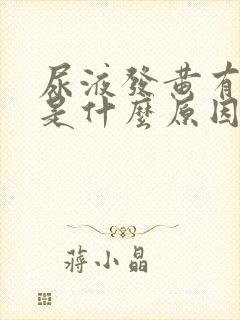 尿液發黄有
是什麼原因
蔣小晶